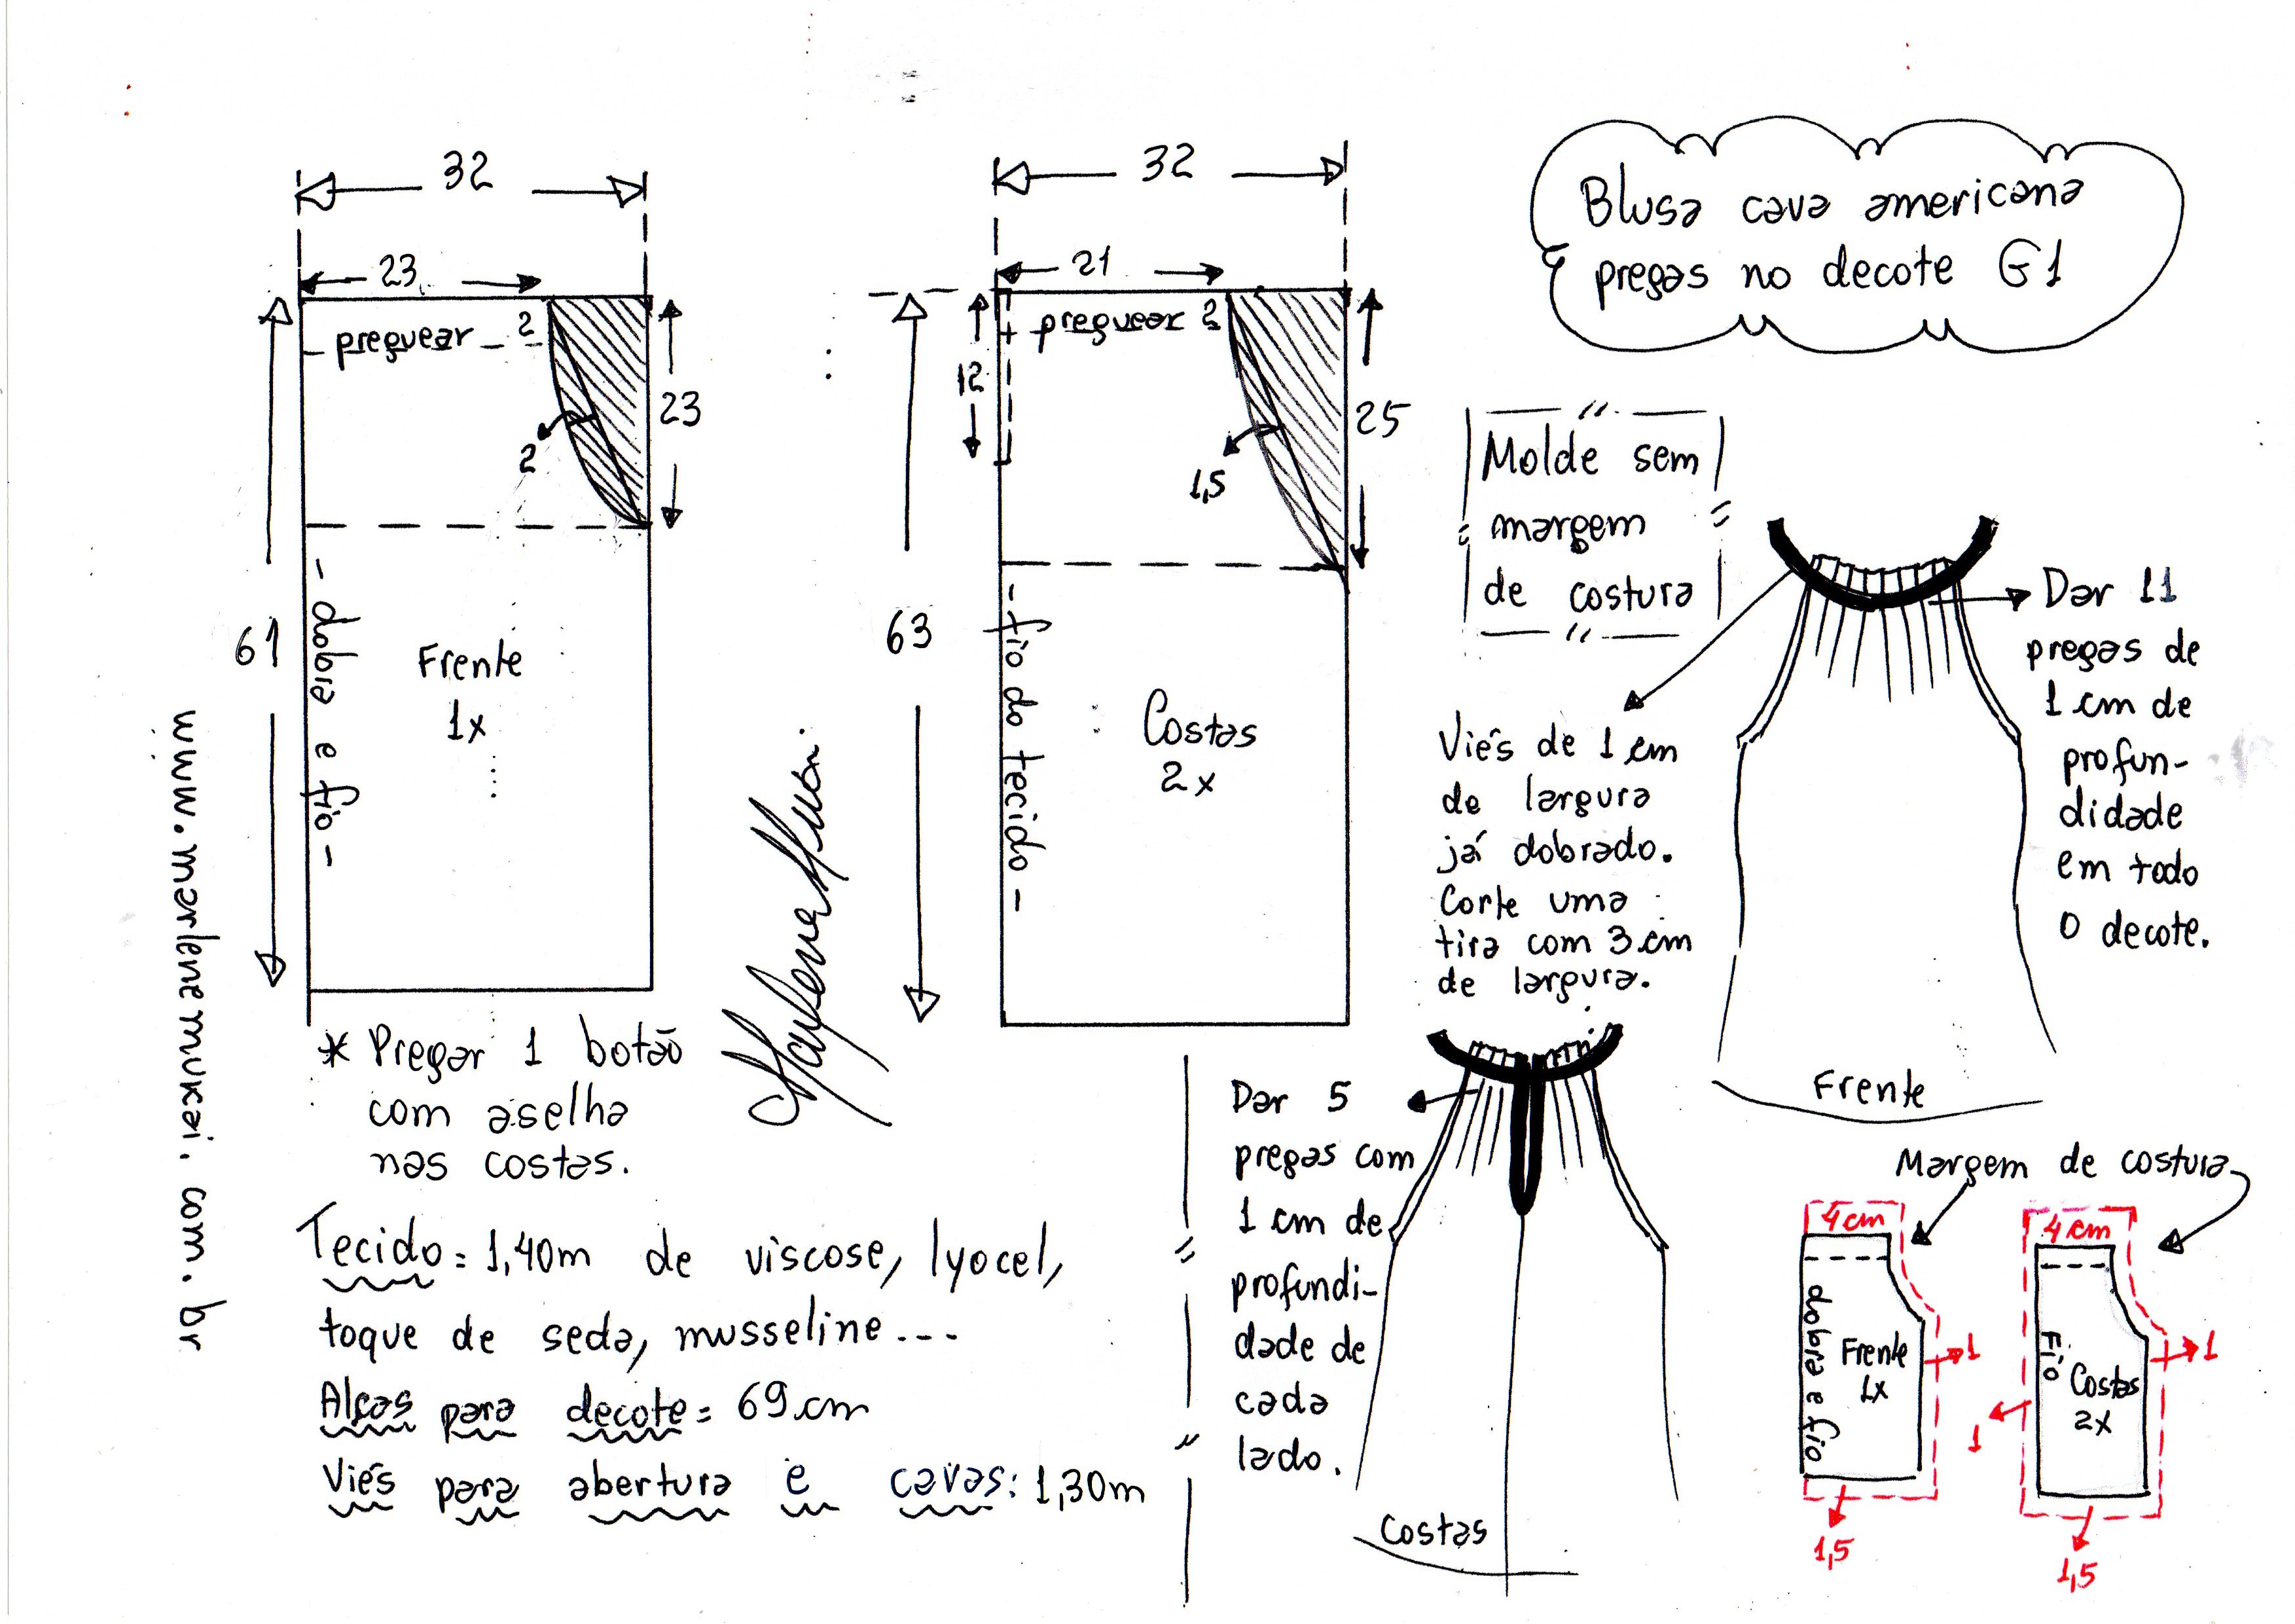 Blusa cava americana
pregas no decote G1
32
23
preguear
2
23
2
61
dobra e fio
Frente
1x
32
21
preguear 2
12
25
1,5
63
fio do tecido
Costas
2x
Molde sem
margem
de costura
Dar 11
pregas de
1 cm de
profun-
didade
em todo
o decote.
Viés de 1 cm
de largura
já dobrado.
Corte uma
tira com 3 cm
de largura.
Frente
* Pregar 1 botão
com aselha
nas costas.
www.marlenemukai.com.br
Marlene Mukai
Tecido = 1,40m de viscose, lyocel,
toque de seda, musseline...
Alças para decote = 69 cm
Viés para abertura e cavas: 1,30m
Dar 5
pregas com
1 cm de
profundi-
dade de
cada
lado.
Costas
Margem de costura
4 cm
dobra e fio
Frente
1x
1
1,5
4 cm
Fio
Costas
2x
1
1
1,5